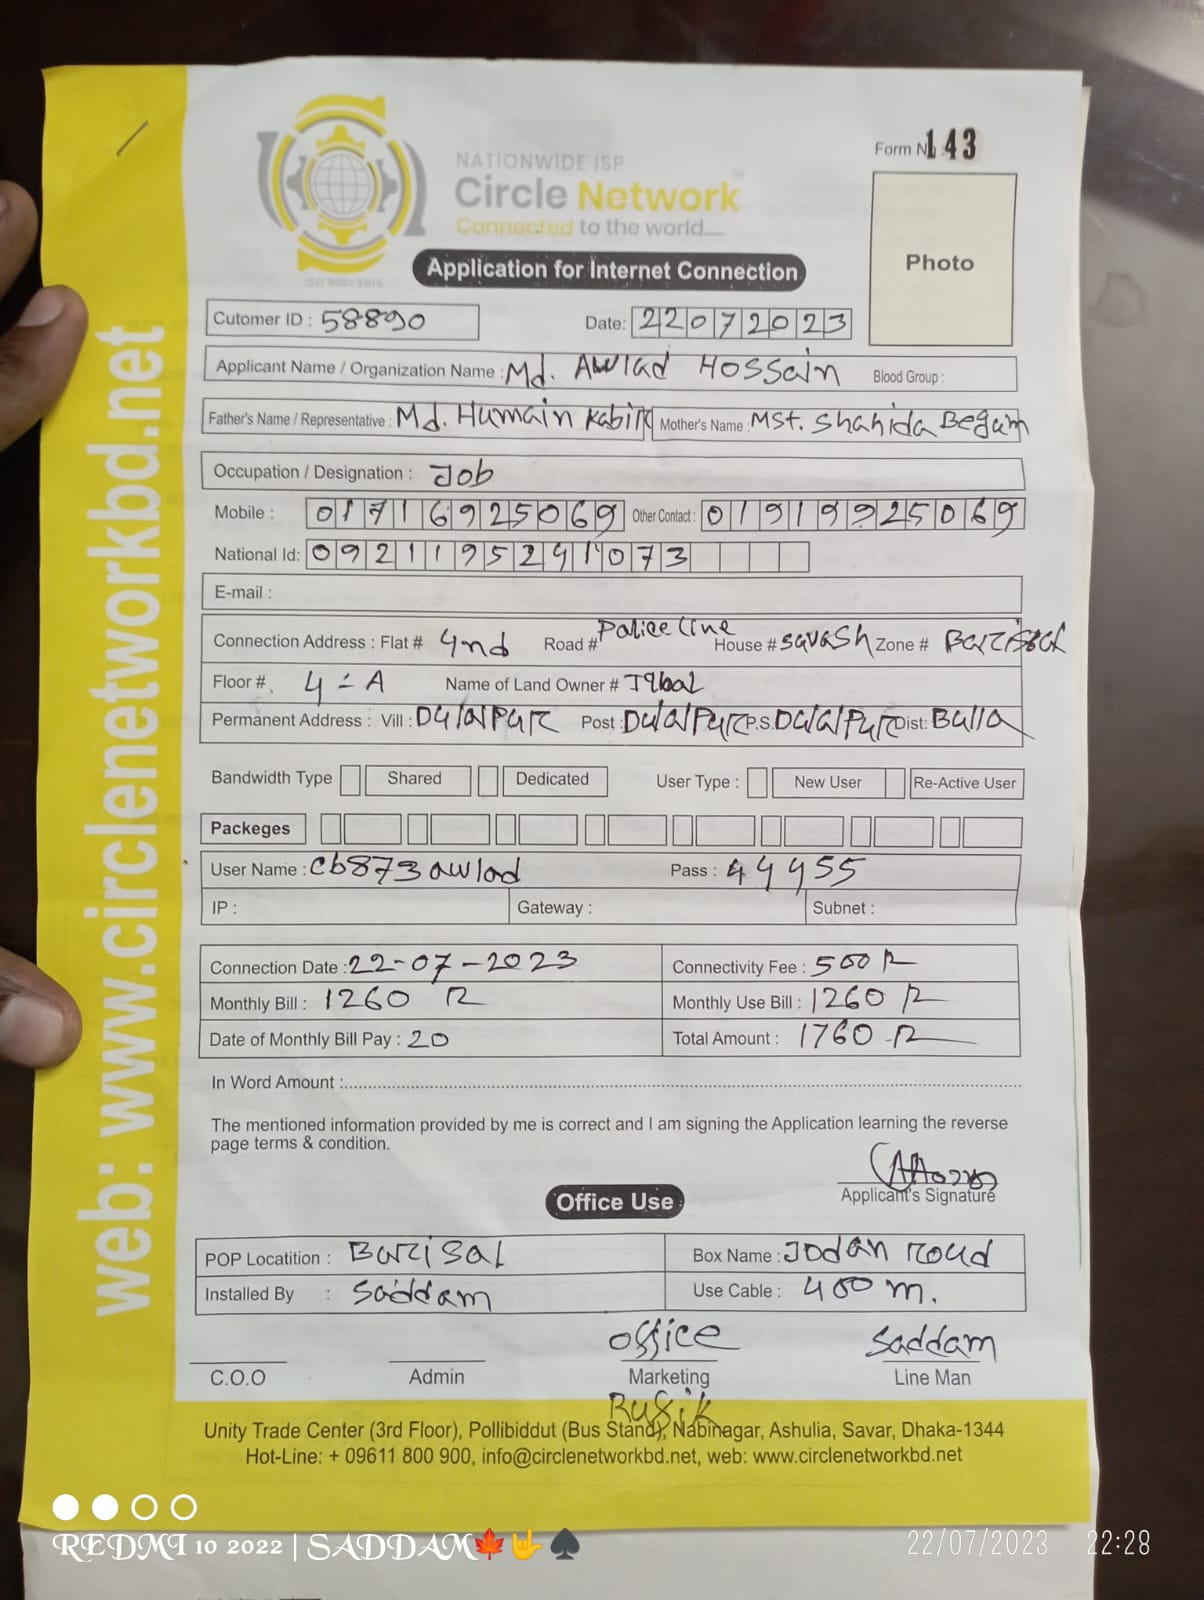 Form No 143
NATIONWIDE ISP
Circle Network
Connected to the world.....
ISO 9001:2015
Application for Internet Connection
Photo
Cutomer ID : 58890 Date: 22072023
Applicant Name / Organization Name : Md. Awlad Hossain Blood Group :
Father's Name / Representative : Md. Humain Kabir Mother's Name : MSt. Shahida Begum
Occupation / Designation : Job
Mobile : 01716925069 Other Contact : 01919925069
National Id: 0921195241073
E-mail :
Connection Address : Flat # 4nd Road # Police Line House # Zone # Barisal
Floor # 4-A Name of Land Owner # Iqbal
Permanent Address : Vill : Dulalpur Post : Dulalpur P.S. Dulalpur Dist:
Bandwidth Type Shared Dedicated User Type : New User Re-Active User
Packeges
User Name : cb873awlad Pass : 44455
IP : Gateway : Subnet :
Connection Date : 22-07-2023 Connectivity Fee : 500
Monthly Bill : 1260 Monthly Use Bill : 1260
Date of Monthly Bill Pay : 20 Total Amount : 1760
In Word Amount :
The mentioned information provided by me is correct and I am signing the Application learning the reverse
page terms & condition.
Applicant's Signature
Office Use
POP Locatition : Barisal Box Name : Jodan roud
Installed By : Saddam Use Cable : 400 m.
office Saddam
C.O.O Admin Marketing Line Man
Unity Trade Center (3rd Floor), Pollibiddut (Bus Stand), Nabinagar, Ashulia, Savar, Dhaka-1344
Hot-Line: + 09611 800 900, info@circlenetworkbd.net, web: www.circlenetworkbd.net
web: www.circlenetworkbd.net
REDMI 10 2022 | SADDAM🍁🤟♠
22/07/2023 22:28